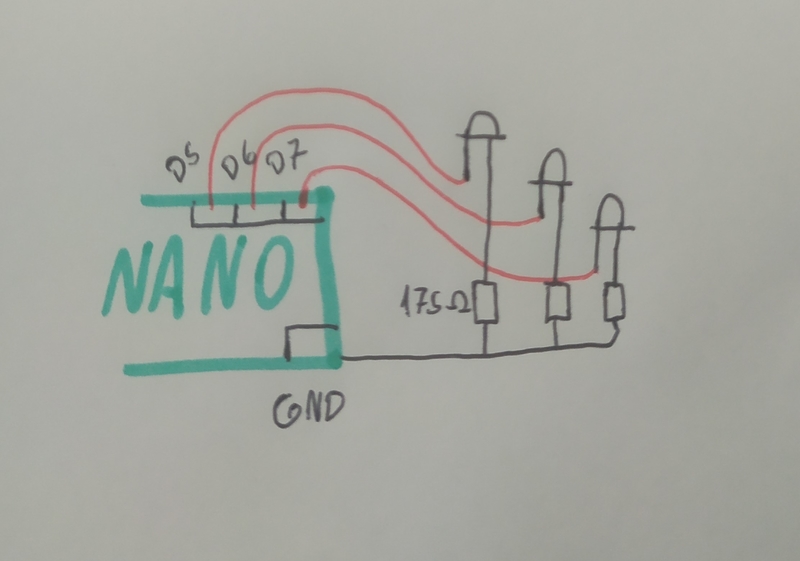 D5 D6 D7
NANO
175Ω
GND